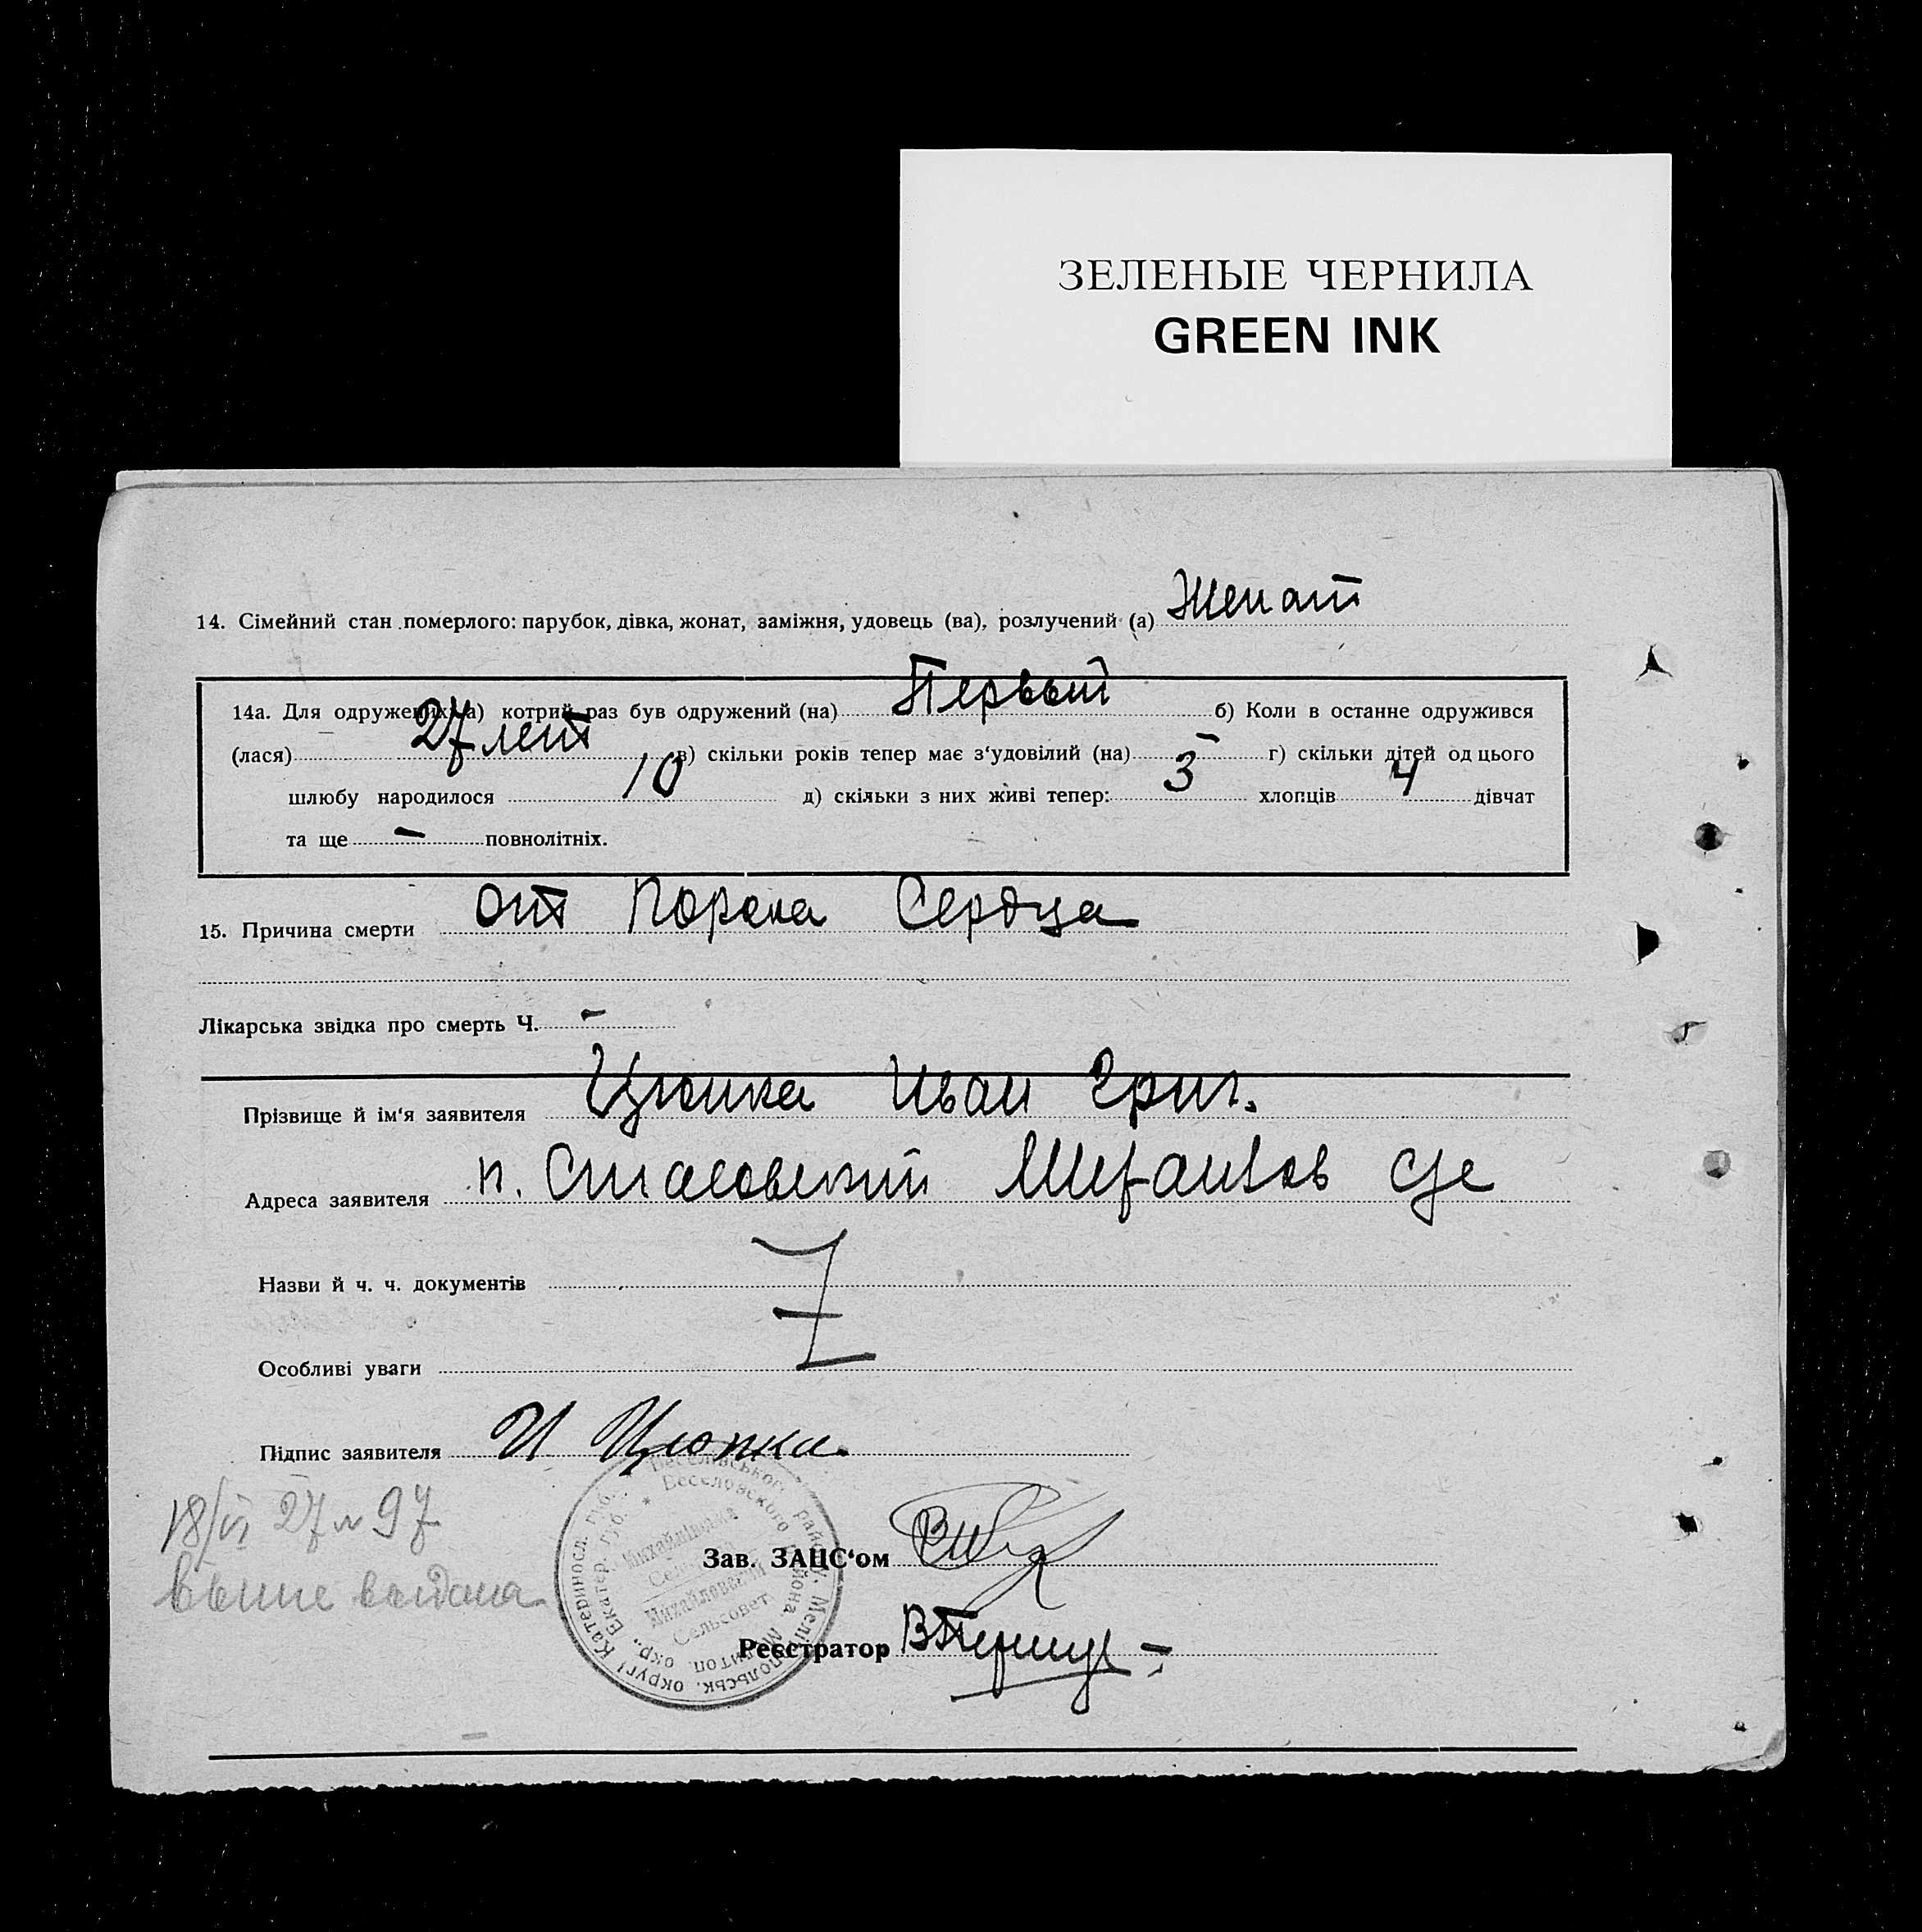 ЗЕЛЕНЫЕ ЧЕРНИЛА
GREEN INK
14. Сімейний стан померлого: парубок, дівка, жонат, заміжня, удовець (ва), розлучений (а) Женат
14а. Для одружених: а) котрий раз був одружений (на) Первый б) Коли в останнє одружився
(лася) 27 лет в) скільки років тепер має з‘удовілий (на) – г) скільки дітей од цього
шлюбу народилося 10 д) скільки з них живі тепер: 3 хлопців 4 дівчат
та ще – повнолітніх.
15. Причина смерти от Порока Сердца
Лікарська звідка про смерть Ч. –
Прізвище й ім‘я заявителя Цюпка Иван Григ.
Адреса заявителя п.
Назви й ч. ч. документів
Особливі уваги
Підпис заявителя И Цюпка.
18/VI 27 № 97
Зав. ЗАЦС‘ом
выпись выдана
Реєстратор
Веселівського району, Мелітопольськ. округ! Катериносл. губ.
Веселовского района, Мелитоп. окр., Екатер. губ.
Михайлівська
Михайловский
Сельсовет